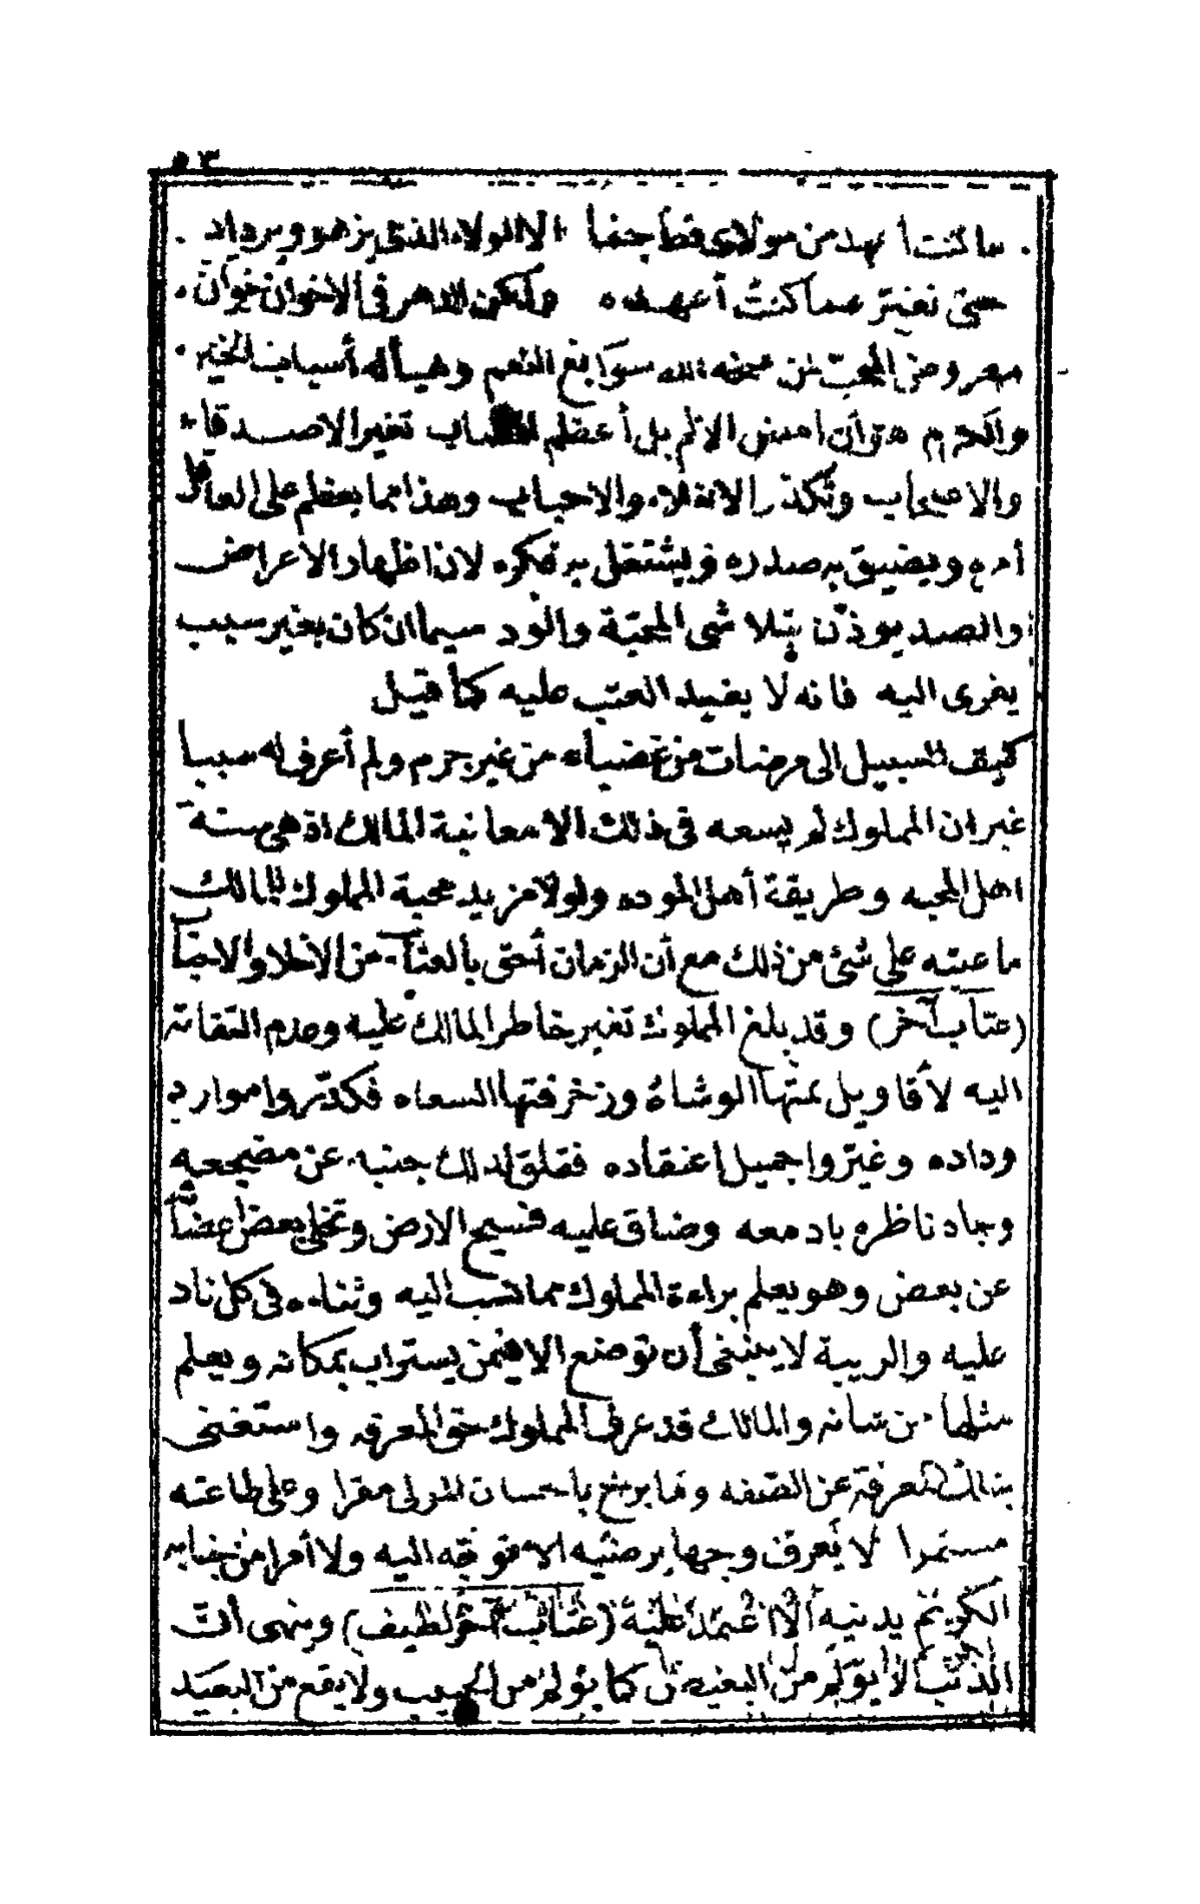 ٥٣
ما كنت أعهد من مولاي قط جفا الا الولاء الذي يزهو ويزداد
حتى تغير عما كنت أعهده ولكن الدهر في الاخوان خوان
معروض المحب لمن محنه الله سوابغ النعم وهيأ له أسباب الخير
والكرم هو ان امض الالم بل أعظم تغير الاصدقاء
والاصحاب وتكدر الاخلاء والاحباب وهذا مما يعظم على العاقل
أمره ويضيق به صدره ويشتغل به فكره لان اظهار الاعراض
والصد يوذن بتلاشي المحبة والود سيما ان كان بغير سبب
يعزى اليه فانه لا يفيد العتب عليه كما قيل
كيف السبيل الى مرضات من غضباء من غير جرم ولم أعرف له سببا
غير ان المملوك لم يسعه في ذلك الا معاتبة المالك اذ هي سنة
اهل المحبه وطريقة أهل الموده ولولا مزيد محبة المملوك للمالك
ما عتبه على شئ من ذلك مع أن الزمان أحق بالعتاب من الاخلا والاحباب
(عتاب آخر) وقد بلغ المملوك تغير خاطر المالك عليه وعدم التفاته
اليه لأقاويل نمتها الوشاة وزخرفتها السعاه فكدروا موارد
وداده وغيروا جميل اعتقاده فقلق لذلك جنبه عن مضجعه
وجاد ناظره بادمعه وضاق عليه فسيح الارض وتخلى بعض أعضائه
عن بعض وهو يعلم براءة المملوك مما نسب اليه وثناءه في كل ناد
عليه والريبة لا ينبغي أن توضع الا فيمن يستراب بمكانه ويعلم
مثلها من شانه والمالك قد عرف المملوك حق المعرفه واستغنى
بتلك المعرفة عن الصفه وما برح باحسان المولى مقرا وعلى طاعته
مستمرا لا يعرف وجها يرضيه الا توجه اليه ولا أمرا من جنابه
الكريم يدنيه ألا اعتمد عليه (عتاب آخر لطيف) وينهى أن
الذنب لا يؤلم من البغيض كما يؤلم من الحبيب ولا يقع من البعيد